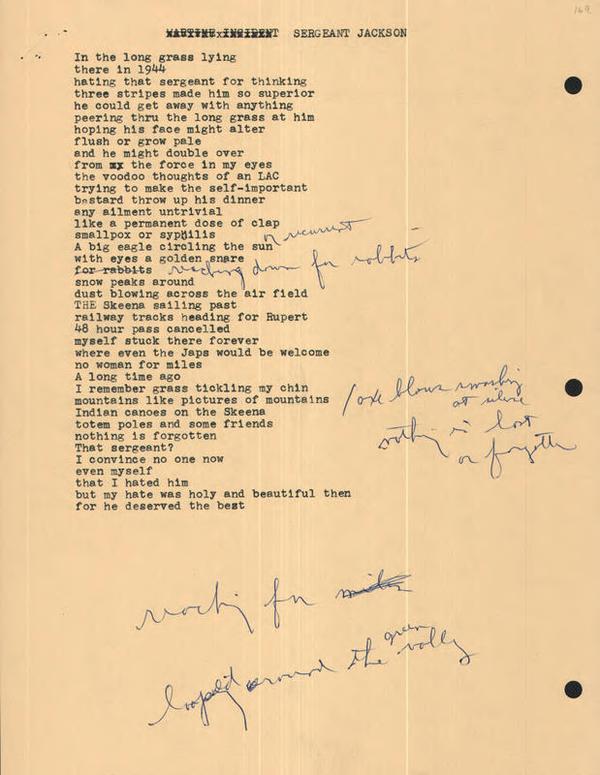 169
WARTIME INCIDENT SERGEANT JACKSON
In the long grass lying
there in 1944
hating that sergeant for thinking
three stripes made him so superior
he could get away with anything
peering thru the long grass at him
hoping his face might alter
flush or grow pale
and he might double over
from my the force in my eyes
the voodoo thoughts of an LAC
trying to make the self-important
bastard throw up his dinner
any ailment untrivial
like a permanent dose of clap
or recurrent
smallpox or syphilis
A big eagle circling the sun
with eyes a golden snare
for rabbits reaching down for rabbits
snow peaks around
dust blowing across the air field
THE Skeena sailing past
railway tracks heading for Rupert
48 hour pass cancelled
myself stuck there forever
where even the Japs would be welcome
no woman for miles
A long time ago
I remember grass tickling my chin
mountains like pictures of mountains
/axe blows smashing
at silence
Indian canoes on the Skeena
totem poles and some friends
nothing is forgotten
nothing is lost
or forgotten
That sergeant?
I convince no one now
even myself
that I hated him
but my hate was holy and beautiful then
for he deserved the best
reaching for miles
looped around the green valley